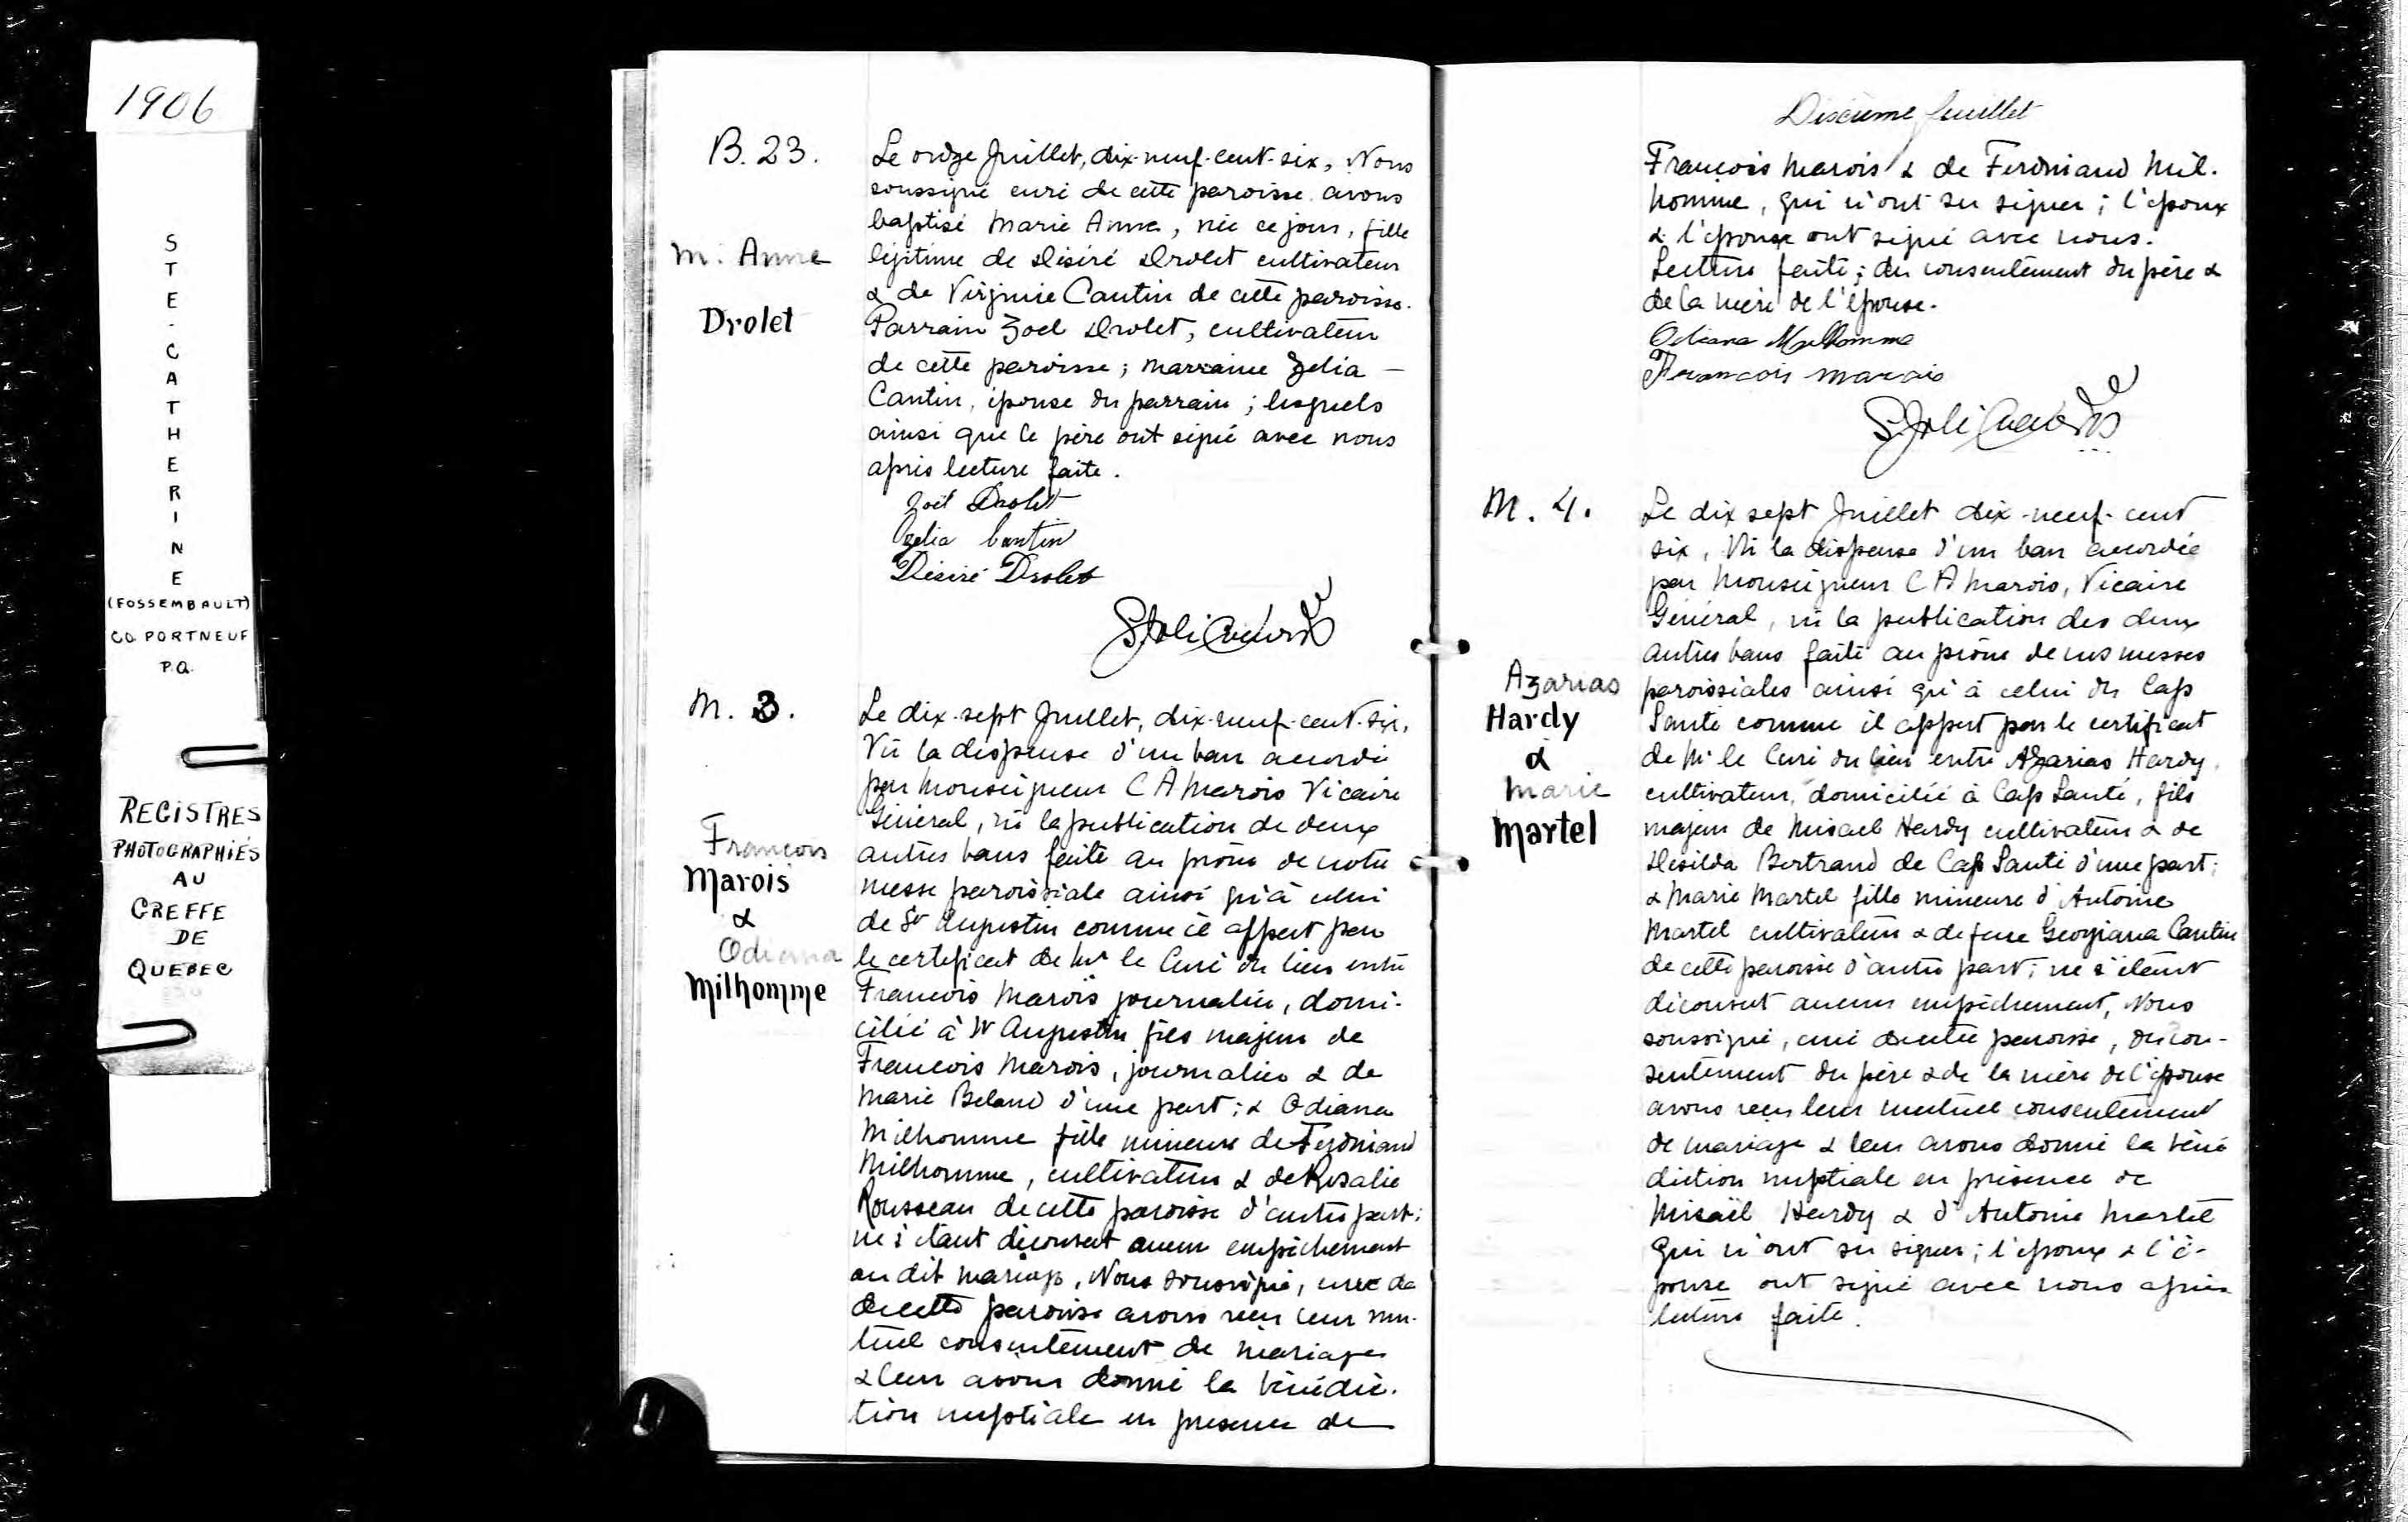 1906
STE-CATHERINE
(FOSSEMBAULT)
CO. PORTNEUF
P.Q.
REGISTRES
PHOTOGRAPHIÉS
AU
GREFFE
DE
QUEBEC
B. 23.
M. Anne
Drolet
Le onze Juillet, dix-neuf-cent-six, Nous
soussigné curé de cette paroisse avons
baptisé Marie Anne, née ce jour, fille
légitime de Désiré Drolet cultivateur
& de Virginie Cantin de cette paroisse.
Parrain Zoel Drolet, cultivateur
de cette paroisse; marraine Zelia -
Cantin, épouse du parrain; lesquels
ainsi que le père ont signé avec nous
après lecture faite.
Zoël Drolet
Ozelia Cantin
Désiré Drolet
M. 3.
François
Marois
&
Odiana
Milhomme
Le dix-sept Juillet, dix-neuf-cent-six,
Vu la dispense d'un ban accordée
par Monseigneur C A Marois Vicaire
Général, vu la publication de deux
autres bans faite au prône de notre
messe paroissiale ainsi qu'à celui
de St Augustin comme il appert par
le certificat de Mr le Curé du lieu entre
François Marois journalier, domi-
cilié à St Augustin fils majeur de
François Marois, journalier & de
Marie Beland d'une part; & Odiana
Milhomme fille mineure de Ferdniand
Milhomme, cultivateur & de Rosalie
Rousseau de cette paroisse d'autre part;
ne s'étant découvert aucun empêchement
au dit mariage, Nous soussigné, curé de
de cette paroisse avons reçu leur mu-
tuel consentement de mariage
& leur avons donné la bénédic-
tion nuptiale en présence de
Dixième feuillet
François Marois & de Ferdniand Mil-
homme, qui n'ont su signer; l'époux
& l'épouse ont signé avec nous.
Lecture faite; du consentement du père &
de la mère de l'épouse.
Odiana Milhomme
Francois marois
M. 4.
Azarias
Hardy
&
Marie
Martel
Le dix sept Juillet dix-neuf-cent
six, Vu la dispense d'un ban accordée
par Monseigneur C A Marois, Vicaire
Général, vu la publication des deux
autres bans faite au prône de nos messes
paroissiales ainsi qu'à celui du Cap
Santé comme il appert par le certificat
de Mr le Curé du lieu entre Azarias Hardy,
cultivateur, domicilié à Cap Santé, fils
majeur de Misael Hardy cultivateur & de
Desilda Bertrand de Cap Santé d'une part;
& Marie Martel fille mineure d'Antoine
Martel cultivateur & de feue Georgiana Cantin
de cette paroisse d'autre part; ne s'étant
découvert aucun empêchement, Nous
soussigné, curé de cette paroisse, du con-
sentement du père & de la mère de l'épouse
avons reçu leur mutuel consentement
de mariage & leur avons donné la béné
diction nuptiale en présence de
Misaël Hardy & d'Antoine Martel
qui n'ont su signer; l'époux & l'é-
pouse ont signé avec nous après
lecture faite.